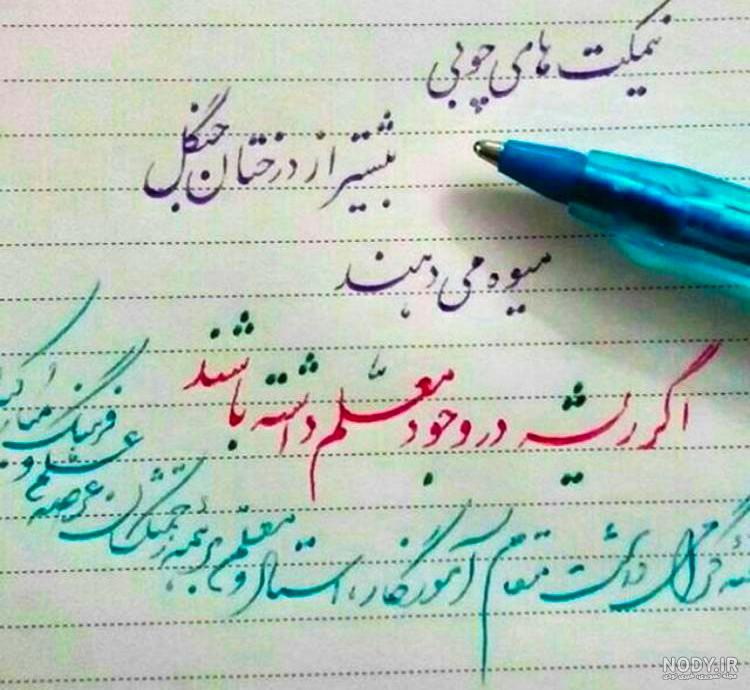 نیمکت های چوبی
بیشتر از درختان جنگل
میوه می دهند
اگر ریشه در وجود معلّم داشته باشند
گرامی داشت مقام آموزگار، استاد و معلّم بر همه زحمتکشان عرصه
علم و
فرهنگ مبارک
NODY.IR
مجله تصویری، خبری نودی